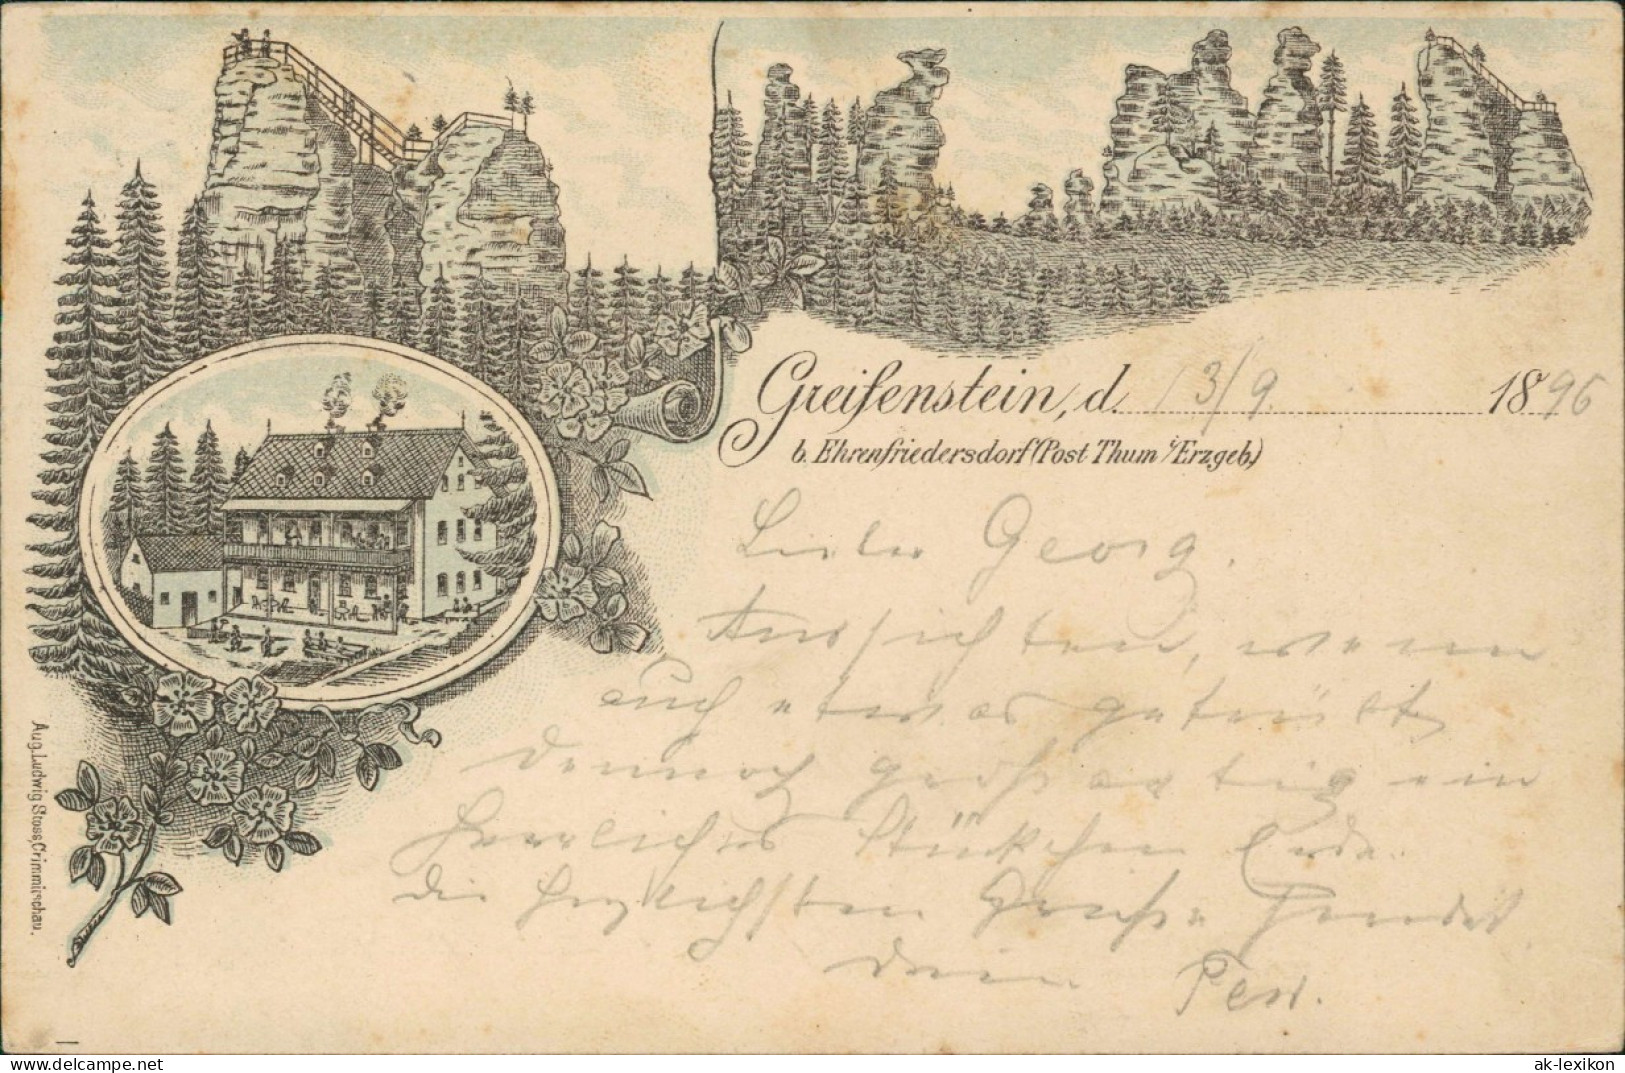 Greifenstein, d. 13/9. 1896
b. Ehrenfriedersdorf (Post Thum i/Erzgeb.)
Lieber Georg.
Aussichten, wenn
auch etwas getrübt,
dennoch großartig ein
herrliches Stückchen Erde.
die herzlichsten Grüße sendet
dein
Aug. Ludwig Stoss, Crimmitschau.
www.delcampe.net
ak-lexikon